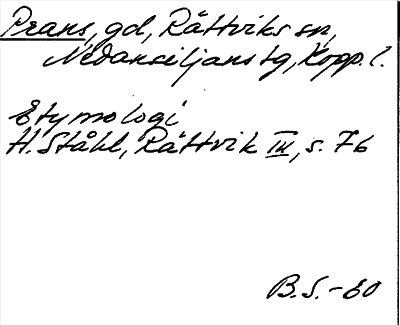 Prans, gd, Rättviks sn,
Nedansiljans tg, Kopp. l.
Etymologi
H. Ståhl, Rättvik III, s. 76
B.S. -60